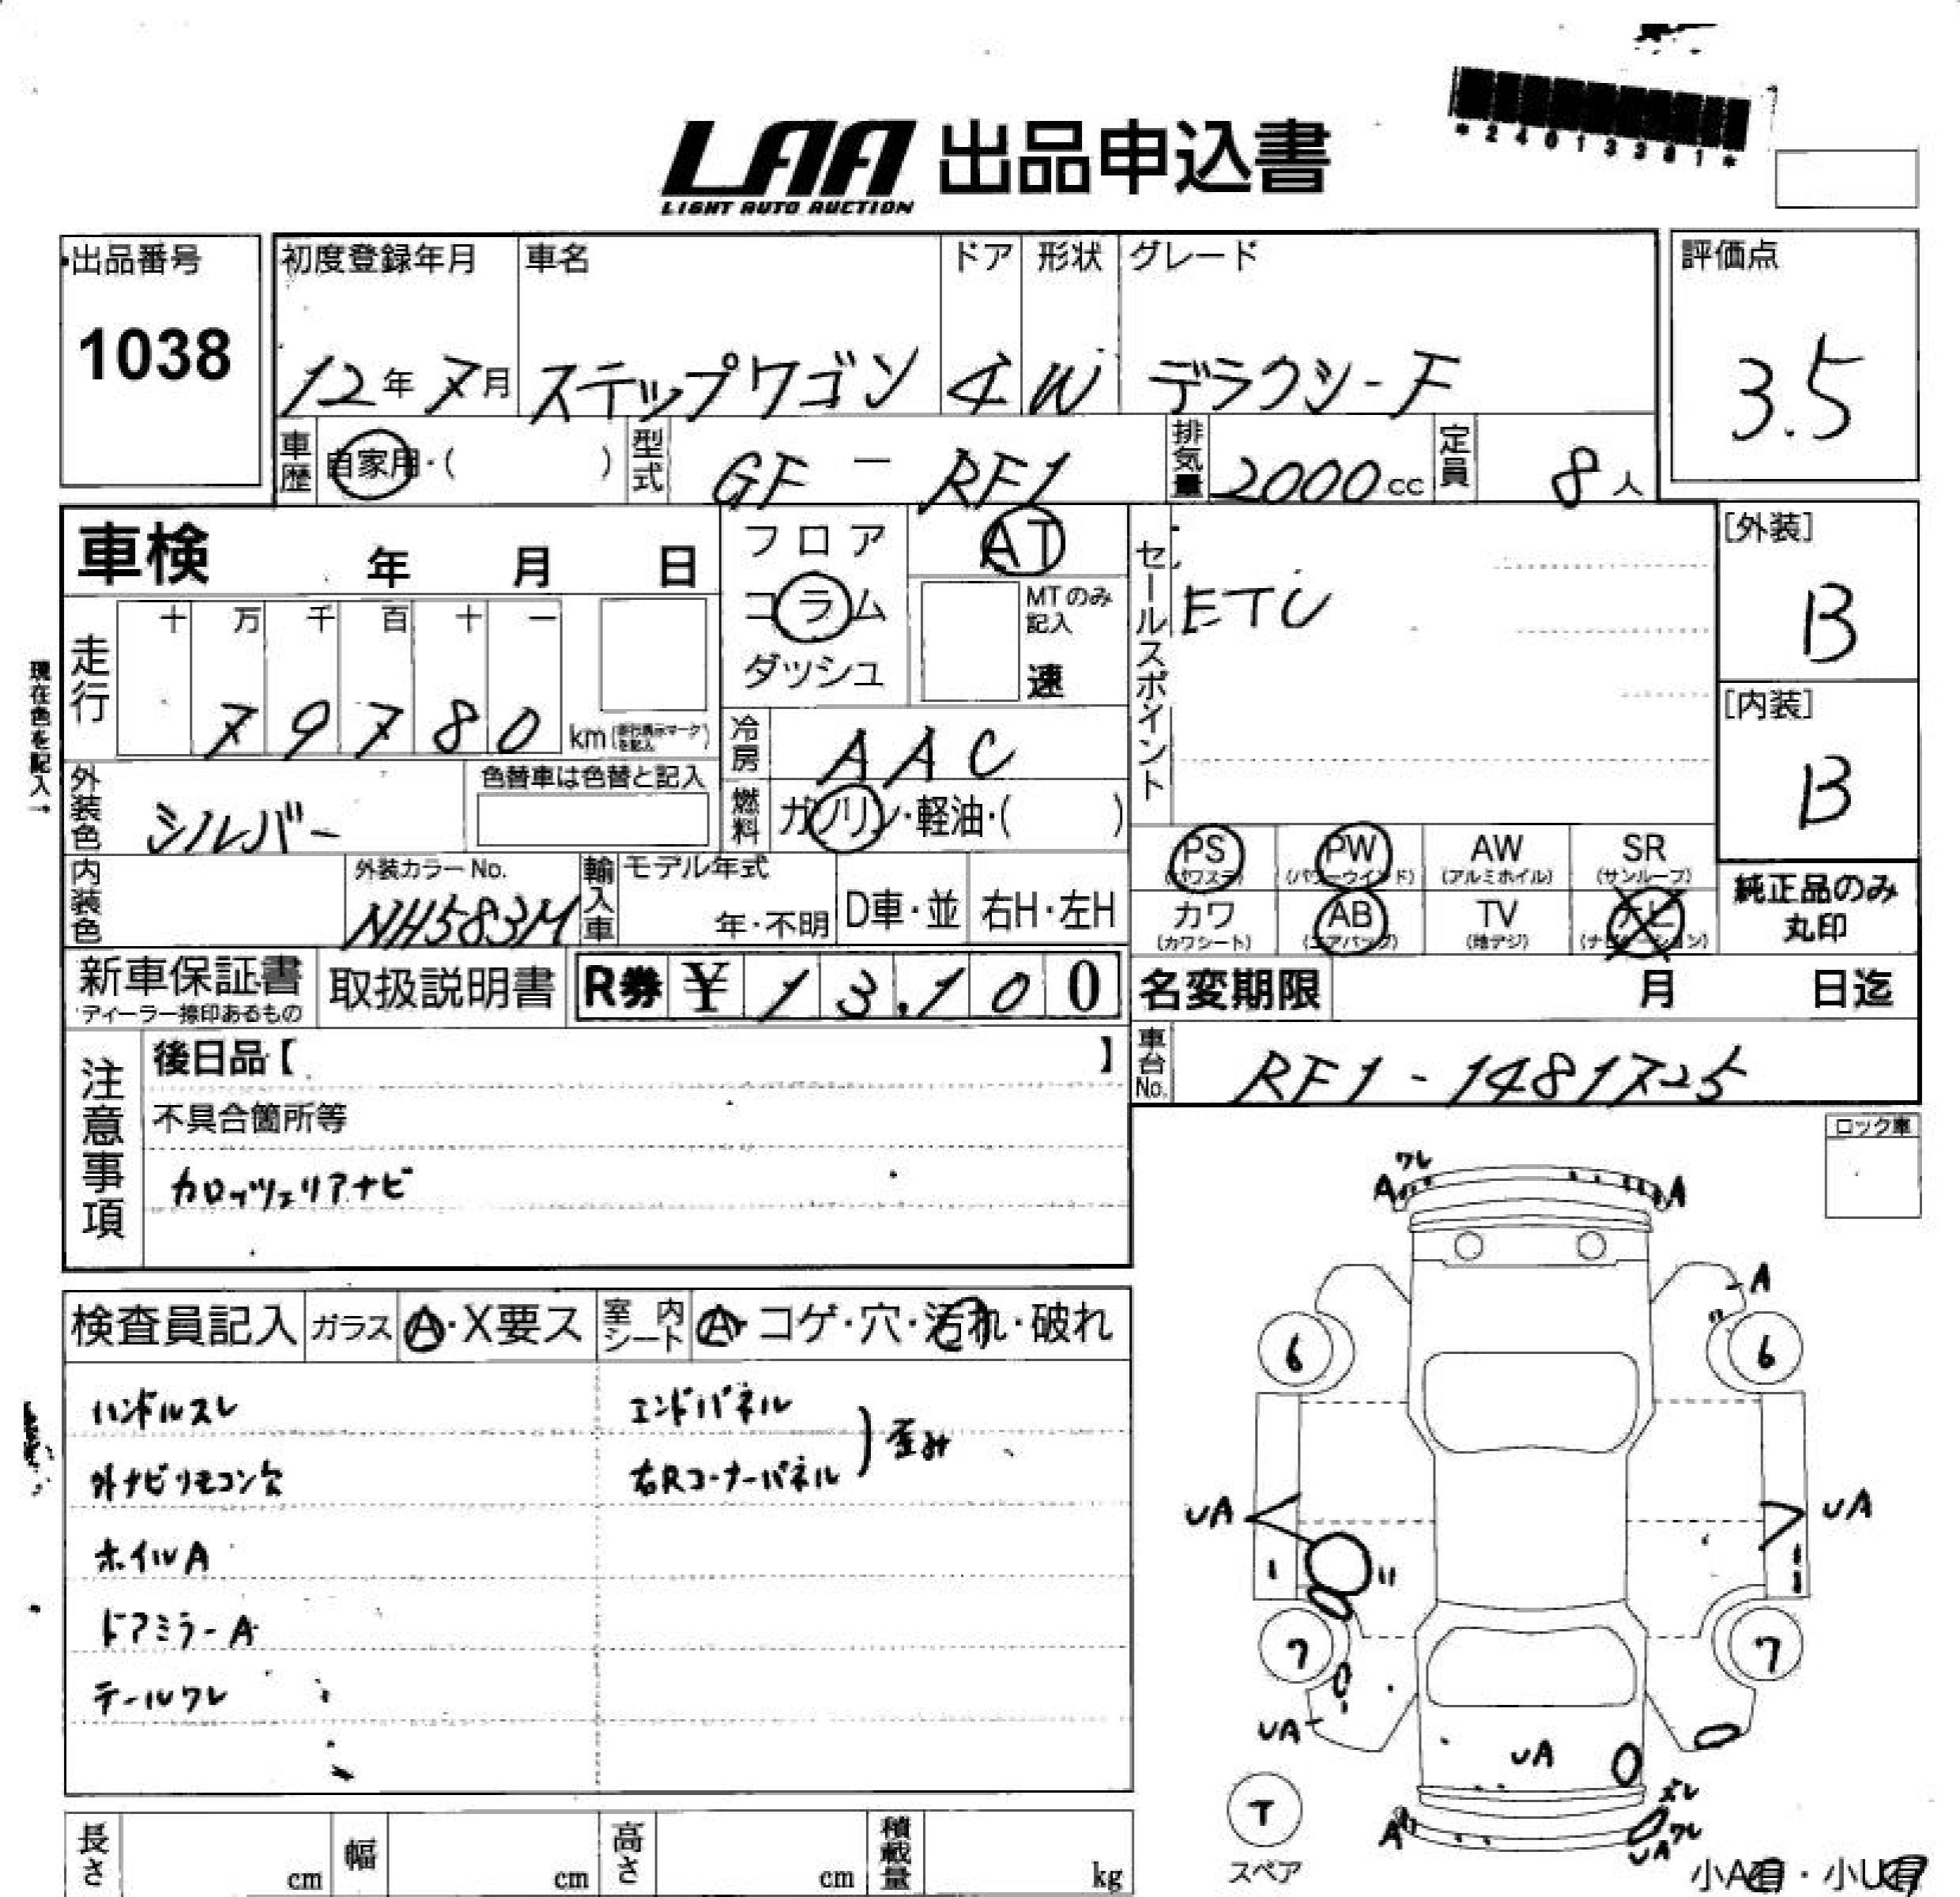 *24013381*
LAA 出品申込書
LIGHT AUTO AUCTION
出品番号 1038
初度登録年月 12年7月
車名 ステップワゴン
ドア 4
形状 W
グレード デラクシーF
評価点 3.5
車歴 自家用・( )
型式 GF-RF1
排気量 2000cc
定員 8人
車検 年 月 日
フロア
コラム
ダッシュ
AT
MTのみ記入
速
セールスポイント
ETC
[外装] B
[内装] B
現在色を記入→
走行 十 万 千 百 十 一
79780 km
冷房 AAC
燃料 ガソリン・軽油・( )
外装色 シルバー
色替車は色替と記入
内装色
外装カラーNo. NH583M
輸入車
モデル年式
年・不明
D車・並
右H・左H
PS (パワステ)
PW (パワーウインド)
AW (アルミホイル)
SR (サンルーフ)
カワ (カワシート)
AB (エアバッグ)
TV (地デジ)
ナビ (ナビゲーション)
純正品のみ
丸印
新車保証書
ディーラー捺印あるもの
取扱説明書
R券 ¥13,100
名変期限 月 日迄
車台No. RF1-1481725
注意事項
後日品【 】
不具合箇所等
カロッツェリアナビ
ロック車
検査員記入
ガラス A・X要ス
室内シート A・コゲ・穴・汚れ・破れ
ハンドルスレ
外ナビリモコン欠
ホイルA
ドアミラーA
テールワレ
エンドパネル
右Rコーナーパネル
歪み
ワレ
A
A
A
6
6
UA
UA
7
7
UA
UA
T
スペア
ズレ
A
ワレ
UA
小A有・小U有
長さ cm
幅 cm
高さ cm
積載量 kg